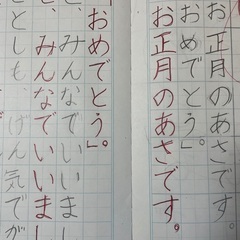 お正月のあさです。
おめでとう」。
お正月のあさです。
おめでとう」。
、みんなでいいまし
、みんなでいいまし
としも、げん気でが